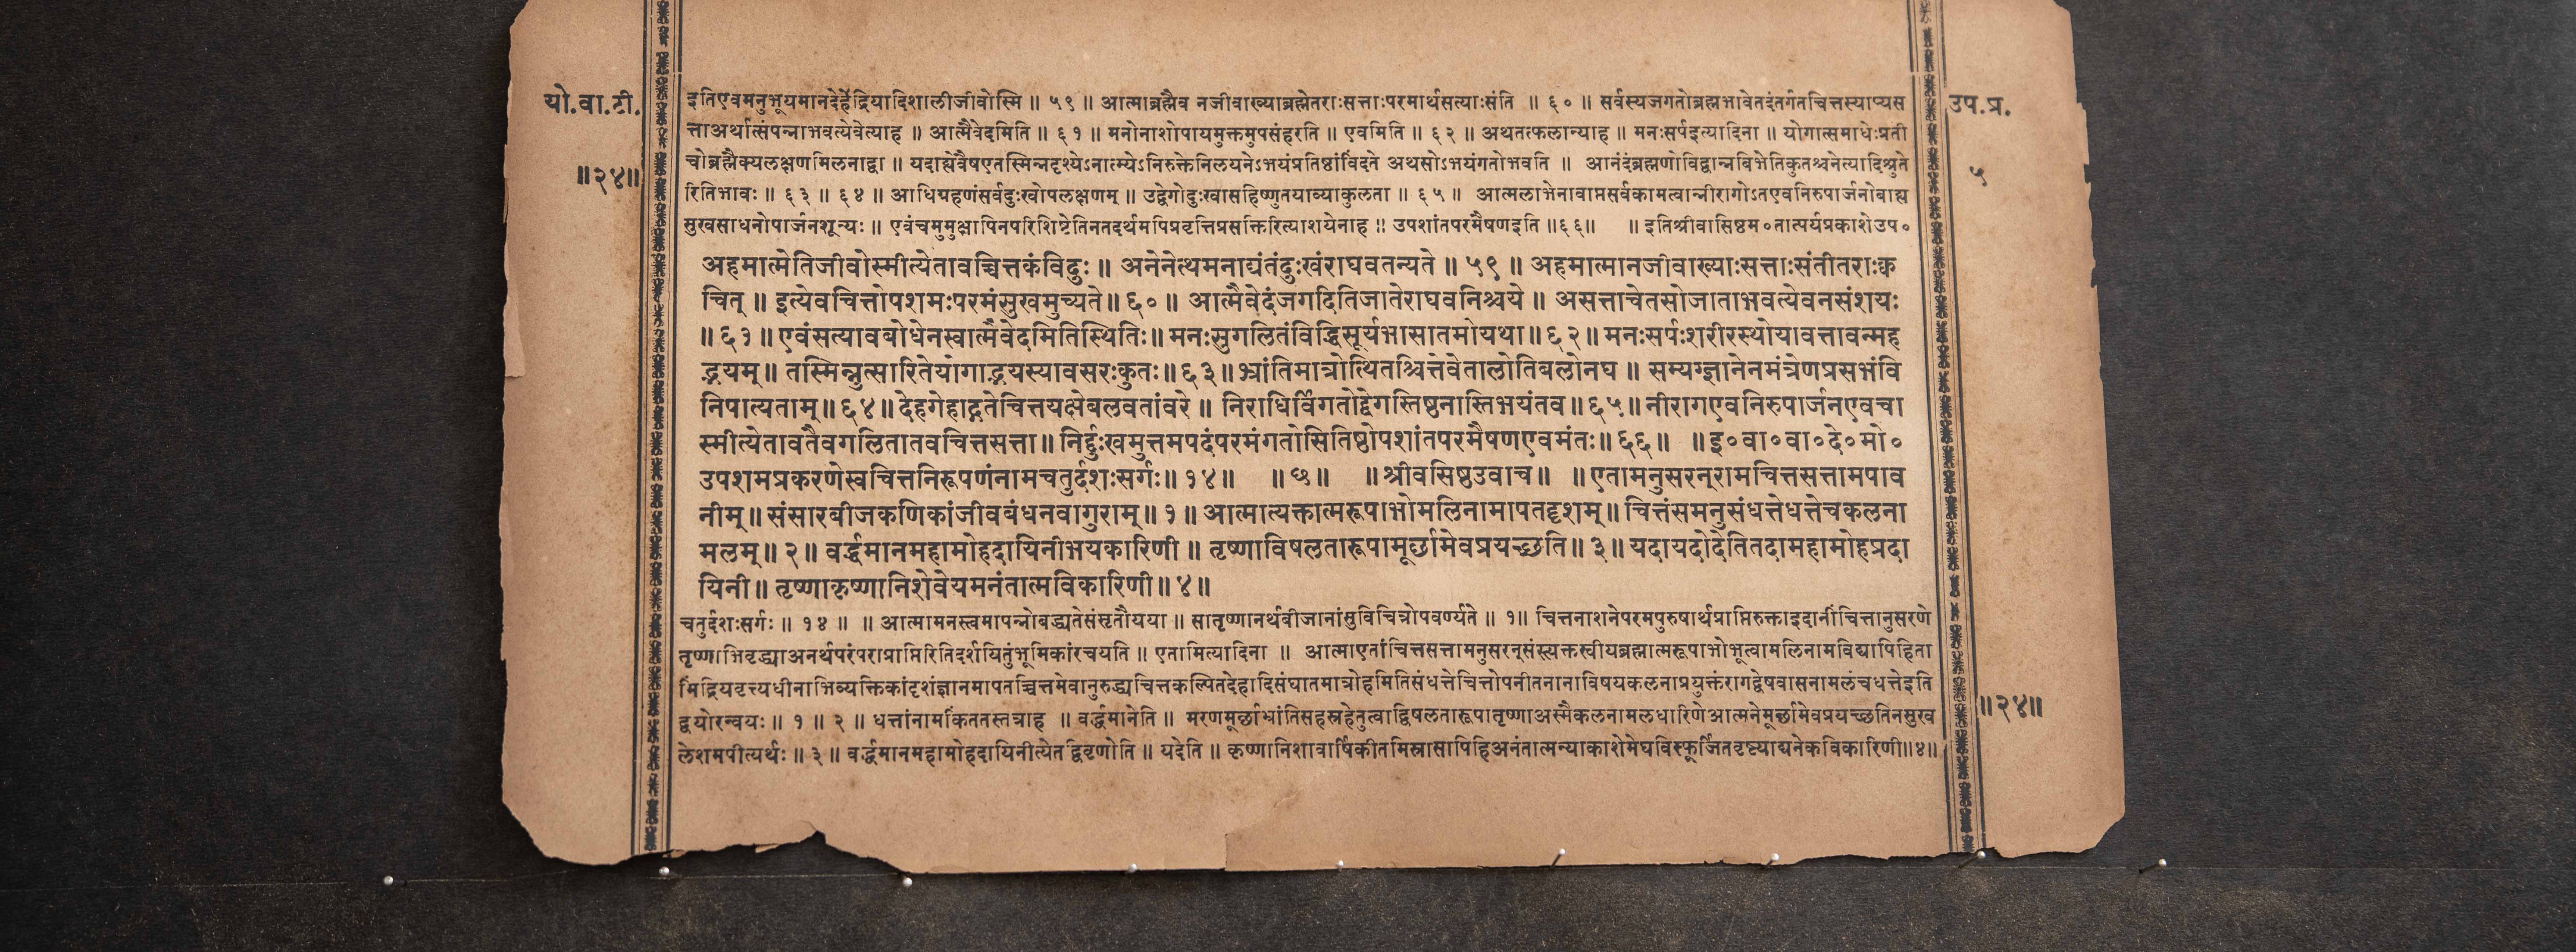 यो.वा.टी.
॥२४॥
इतिएवमनुभूयमानदेहेंद्रियादिशालीजीवोस्मि ॥ ५९ ॥ आत्माब्रह्मैव नजीवाख्याब्रह्मेतराःसत्ताःपरमार्थसत्याःसंति ॥ ६० ॥ सर्वस्यजगतोब्रह्मभावेतदंतर्गतचित्तस्याप्यस
त्ताअर्थात्संपन्नाभवत्येवेत्याह ॥ आत्मैवेदमिति ॥ ६१ ॥ मनोनाशोपायमुक्तमुपसंहरति ॥ एवमिति ॥ ६२ ॥ अथतत्फलान्याह ॥ मनःसर्पइत्यादिना ॥ योगात्समाधेःप्रती
चोब्रह्मैक्यलक्षणमिलनाद्वा ॥ यदाह्येवैषएतस्मिन्नदृश्येऽनात्म्येऽनिरुक्तेनिलयनेऽभयंप्रतिष्ठांविंदते अथसोऽभयंगतोभवति ॥ आनंदंब्रह्मणोविद्वान्नबिभेतिकुतश्चनेत्यादिश्रुते
रितिभावः ॥ ६३ ॥ ६४ ॥ आधिग्रहणंसर्वदुःखोपलक्षणम् ॥ उद्वेगोदुःखासहिष्णुतयाव्याकुलता ॥ ६५ ॥ आत्मलाभेनावाप्तसर्वकामत्वान्नीरागोऽतएवनिरुपार्जनोबाह्य
सुखसाधनोपार्जनशून्यः ॥ एवंचमुमुक्षापिनपरिशिष्टेतिनतदर्थमपिप्रवृत्तिप्रसक्तिरित्याशयेनाह ॥ उपशांतपरमैषणइति ॥६६॥ ॥ इतिश्रीवासिष्ठम०तात्पर्यप्रकाशेउप०
अहमात्मेतिजीवोस्मीत्येतावच्चित्तकंविदुः ॥ अनेनेत्थमनाद्यंतंदुःखंराघवतन्यते ॥ ५९ ॥ अहमात्मानजीवाख्याःसत्ताःसंतीतराःक्व
चित् ॥ इत्येवचित्तोपशमःपरमंसुखमुच्यते॥ ६० ॥ आत्मैवेदंजगदितिजातेराघवनिश्चये ॥ असत्ताचेतसोजाताभवत्येवनसंशयः
॥ ६१ ॥ एवंसत्यावबोधेनस्वात्मैवेदमितिस्थितिः॥ मनःसुगलितंविद्धिसूर्यभासातमोयथा॥ ६२॥ मनःसर्पःशरीरस्थोयावत्तावन्मह
द्भयम्॥ तस्मिन्नुत्सारितेयोगाद्भयस्यावसरःकुतः॥ ६३॥ भ्रांतिमात्रोत्थितश्चित्तवेतालोतिबलोनघ ॥ सम्यग्ज्ञानेनमंत्रेणप्रसभंवि
निपात्यताम्॥ ६४॥ देहगेहाद्गतेचित्तयक्षेबलवतांवरे ॥ निराधिर्विगतोद्वेगस्तिष्ठनास्तिभयंतव॥ ६५॥ नीरागएवनिरुपार्जनएवचा
स्मीत्येतावतैवगलितातवचित्तसत्ता॥ निर्दुःखमुत्तमपदंपरमंगतोसितिष्ठोपशांतपरमैषणएवमंतः॥ ६६॥ ॥इ०वा०वा०दे०मो०
उपशमप्रकरणेस्वचित्तनिरूपणंनामचतुर्दशःसर्गः॥ १४॥ ॥ छ॥ ॥श्रीवसिष्ठउवाच॥ ॥एतामनुसरन्रामचित्तसत्तामपाव
नीम्॥ संसारबीजकणिकांजीवबंधनवागुराम्॥ १॥ आत्मात्यक्तात्मरूपाभोमलिनामापतदृशम्॥ चित्तंसमनुसंधत्तेधत्तेचकलना
मलम्॥ २॥ वर्द्धमानमहामोहदायिनीभयकारिणी ॥ तृष्णाविषलतारूपामूर्छामेवप्रयच्छति॥ ३॥ यदायदोदेतितदामहामोहप्रदा
यिनी॥ तृष्णाकृष्णानिशेवेयमनंतात्मविकारिणी॥ ४॥
चतुर्दशःसर्गः ॥ १४ ॥ ॥ आत्मामनस्त्वमापन्नोबद्ध्यतेसंसृतौयया ॥ सातृष्णानर्थबीजानांसुविचित्रोपवर्ण्यते ॥ १॥ चित्तनाशनेपरमपुरुषार्थप्राप्तिरुक्ताइदानींचित्तानुसरणे
तृष्णाभिवृद्ध्याअनर्थपरंपराप्राप्तिरितिदर्शयितुंभूमिकांरचयति ॥ एतामित्यादिना ॥ आत्माएतांचित्तसत्तामनुसरन्संस्त्यक्तस्वीयब्रह्मात्मरूपाभोभूत्वामलिनामविद्यापिहिता
मिंद्रियवृत्त्यधीनाभिव्यक्तिकांदृशंज्ञानमापतच्चित्तमेवानुरुद्ध्यचित्तकल्पितदेहादिसंघातमात्रोहमितिसंधत्तेचित्तोपनीतनानाविषयकलनाप्रयुक्तंरागद्वेषवासनामलंचधत्तेइति
द्वयोरन्वयः ॥ १ ॥ २ ॥ धत्तांनामकिंततस्तत्राह ॥ वर्द्धमानेति ॥ मरणमूर्छाभ्रांतिसहस्रहेतुत्वाद्विषलतारूपातृष्णाअस्मैकलनामलधारिणेआत्मनेमूर्छामेवप्रयच्छतिनसुख
लेशमपीत्यर्थः ॥ ३ ॥ वर्द्धमानमहामोहदायिनीत्येतद्विवृणोति ॥ यदेति ॥ कृष्णानिशावार्षिकीतमिस्रासापिहिअनंतात्मन्याकाशेमेघविस्फूर्जितवृष्ट्याद्यनेकविकारिणी॥४॥
उप.प्र.
५
॥२४॥